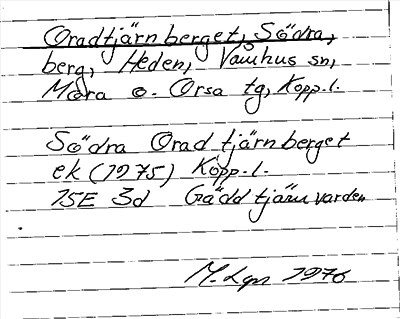 Oradtjärnberget, Södra,
berg, Heden, Våmhus sn,
Mora o. Orsa tg, Kopp.l.
Södra Oradtjärnberget
ek (1975) Kopp.l.
15E 3d Gäddtjärnvarden
M. Lgn 1976